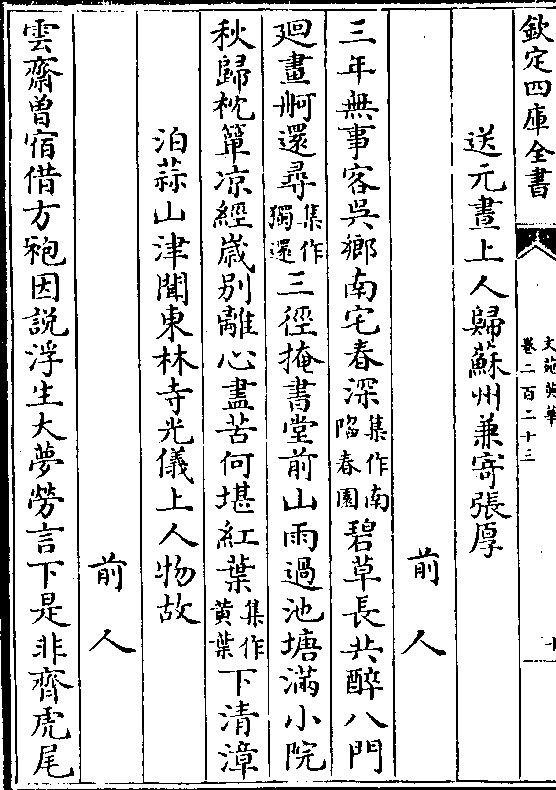 欽定四庫全書
文苑英華
卷二百二十三
十
送元晝上人歸蘇州兼寄張厚
前人
三年無事客吳鄉南宅春深集作南陷春園碧草長共醉八門
廻畫舸還尋集作獨還三徑掩書堂前山雨過池塘滿小院
秋歸枕簟凉經歳别離心盡苦何堪紅葉集作黄葉下清漳
泊蒜山津聞東林寺光儀上人物故
前人
雲齋曽宿借方袍因説浮生大夢勞言下是非齊虎尾